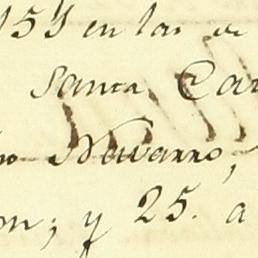 151 en las de
Santa Ca
no Navarro,
on; y 25. a